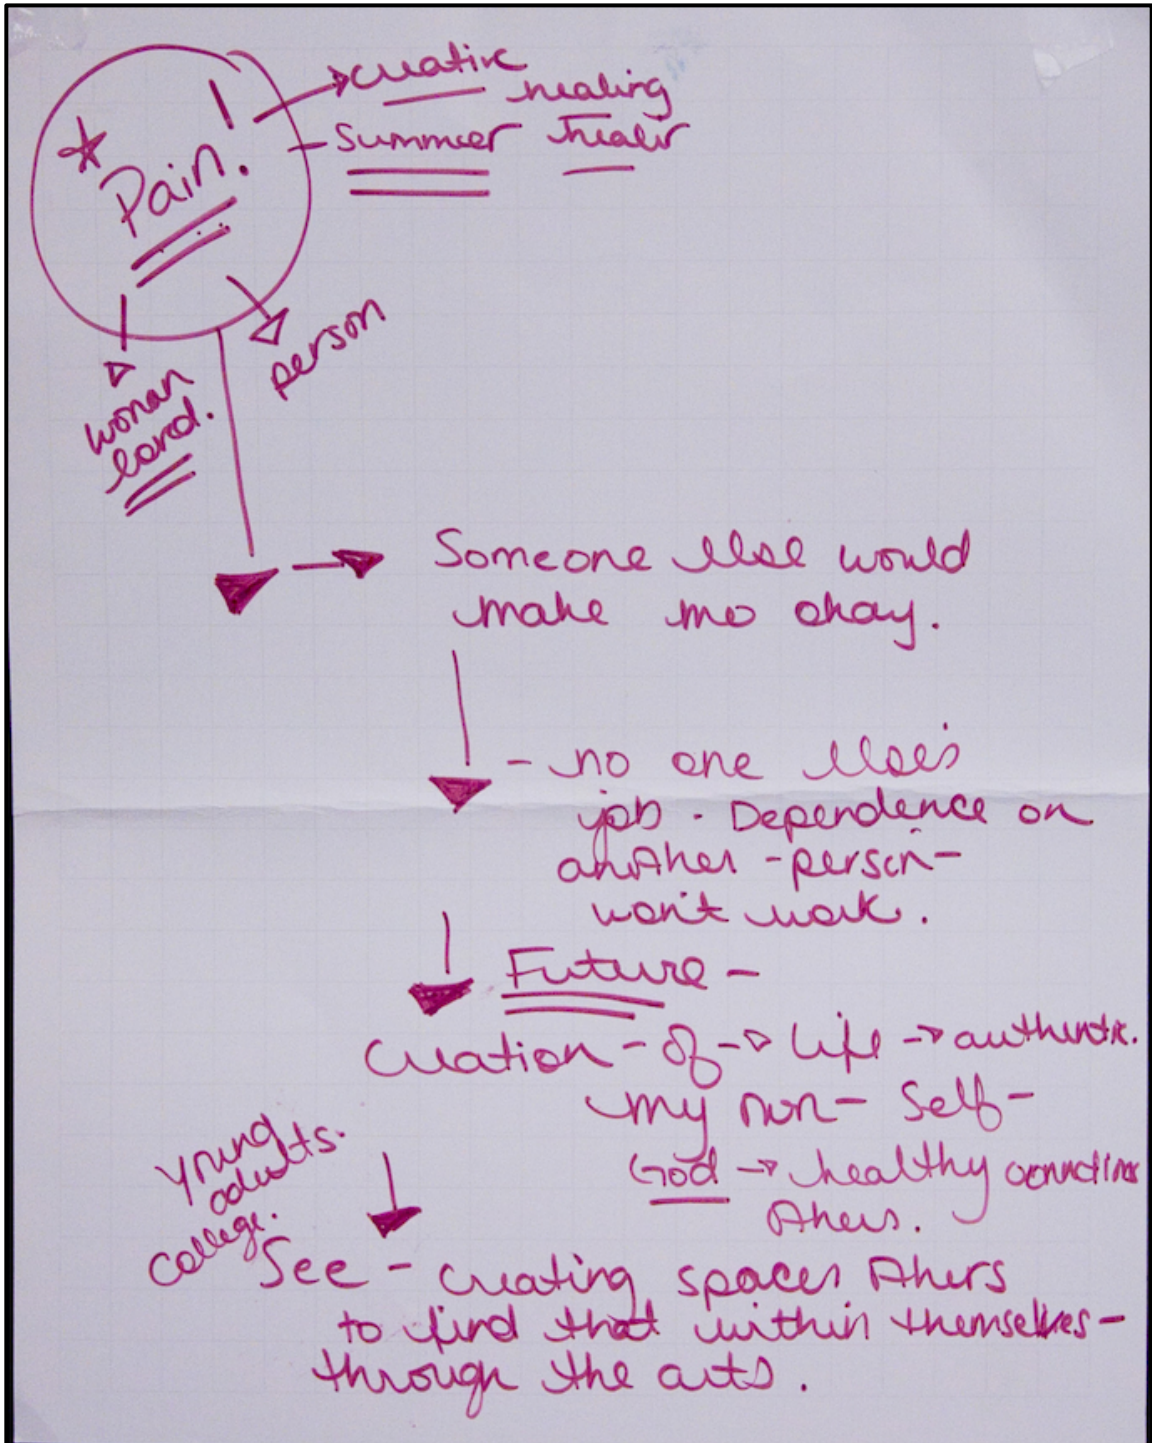 Pain.
creative
healing
Summer healer
person
woman
loved.
Someone else would
make me okay.
- no one else's
job. Dependence on
another - person -
won't work.
Future -
Creation - of → Life → authentic.
my own - Self -
God → healthy connections
others.
young
adults.
college.
See - creating spaces others
to find that within themselves -
through the arts.